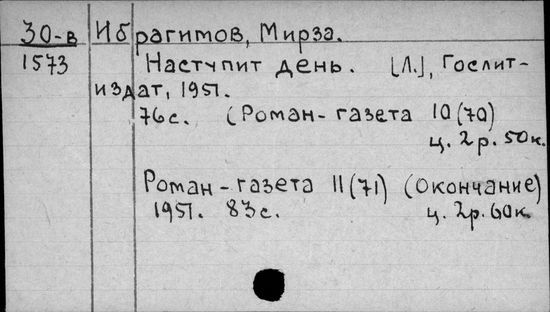 30-в Ибрагимов, Мирза.
1573 Наступит день. [Л.], Гослит-
издат, 1951.
76с. (Роман-газета 10(70)
ц. 2р. 50к.
Роман-газета 11(71) (Окончание)
1951. 83с. ц. 2р. 60к.